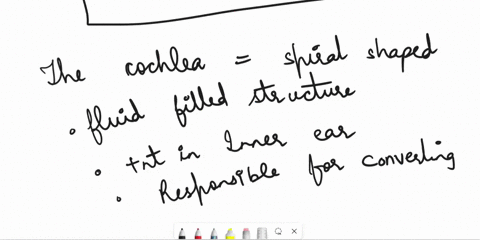 The cochlea = spiral shaped
• fluid filled structure
• +nt in Inner ear
• Responsible for converting